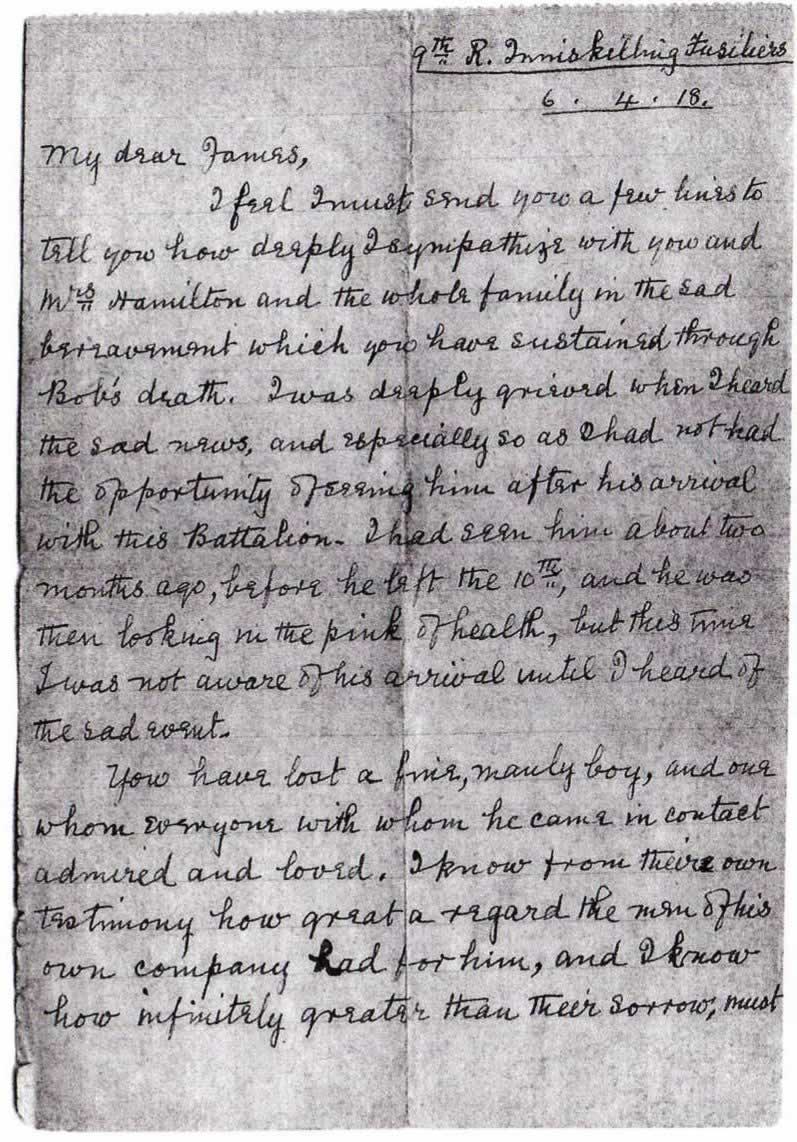 9th R. Inniskilling Fusiliers
6. 4. 18.
My dear James,
I feel I must send you a few lines to
tell you how deeply I sympathize with you and
Mrs Hamilton and the whole family in the sad
bereavement which you have sustained through
Bob's death. I was deeply grieved when I heard
the sad news, and especially so as I had not had
the opportunity of seeing him after his arrival
with this Battalion. I had seen him about two
months ago, before he left the 10th, and he was
then looking in the pink of health, but this time
I was not aware of his arrival until I heard of
the sad event.
You have lost a fine, manly boy, and one
whom everyone with whom he came in contact
admired and loved. I know from their own
testimony how great a regard the men of his
own company had for him, and I know
how infinitely greater than their sorrow, must